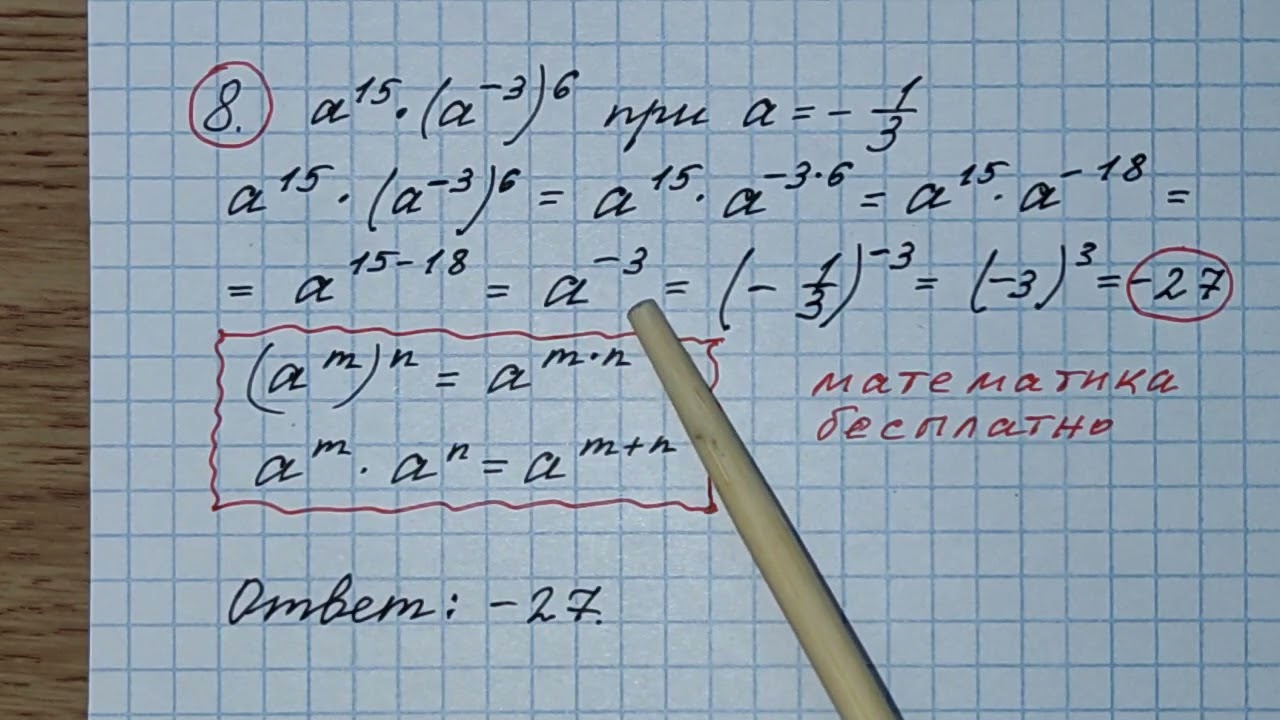 8. a¹⁵·(a⁻³)⁶ при a = -1/3
a¹⁵·(a⁻³)⁶ = a¹⁵·a⁻³·⁶ = a¹⁵·a⁻¹⁸ =
= a¹⁵⁻¹⁸ = a⁻³ = (-1/3)⁻³ = (-3)³ = -27
(aᵐ)ⁿ = aᵐ·ⁿ
aᵐ·aⁿ = aᵐ⁺ⁿ
математика
бесплатно
Ответ: -27.